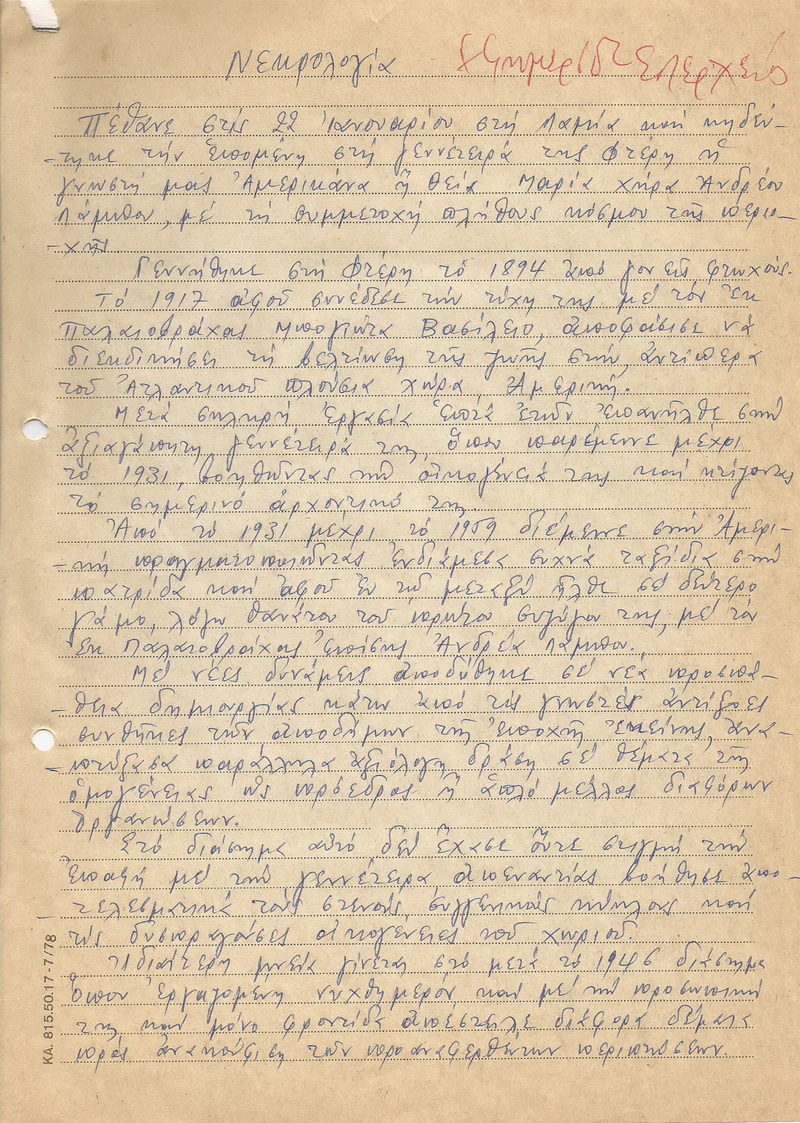 Νεκρολογία
Πέθανε στίς 22 Ἰανουαρίου στή Λαμία καί κηδεύ-
-τηκε τήν ἑπομένη στή γεννέτειρά της Φτέρη ἡ
γνωστή μας Ἀμερικάνα ἤ θεία Μαρία χήρα Ἀνδρέου
Λάμπου, μέ τή συμμετοχή πλήθους κόσμου τῆς περιο-
-χῆς
Γεννήθηκε στή Φτέρη τό 1894 ἀπό γονεῖς φτωχούς.
Τό 1917 ἀφοῦ συνέδεσε τήν τύχη της μέ τόν ἐκ
Παλαιοβράχας Μπογιώτα Βασίλειο, ἀποφάσισε νά
διεκδικήσει τή βελτίωση τῆς ζωῆς στήν ἀντίπερα
τοῦ Ἀτλαντικοῦ πλούσια χώρα Ἀμερική.
Μετά σκληρή ἐργασία ἑπτά ἐτῶν ἐπανῆλθε στήν
ἀξιαγάπητη γεννέτειρά της, ὅπου παρέμεινε μέχρι
τό 1931, βοηθώντας τήν οἰκογένειά της καί κτίζοντας
τό σημερινό ἀρχοντικό της
Ἀπό τό 1931 μέχρι τό 1959 διέμεινε στήν Ἀμερι-
-κή πραγματοποιώντας ἐνδιάμεσα συχνά ταξίδια στήν
πατρίδα καί ἀφοῦ ἐν τῶ μεταξύ ἦλθε σέ δεύτερο
γάμο, λόγω θανάτου τοῦ πρώτου συζύγου της, μέ τόν
ἐκ Παλαιοβράχας ἐπίσης Ἀνδρέα Λάμπου.
Μέ νέες δυνάμεις ἀποδύθηκε σέ νέα προσπά-
-θεια δημιουργίας κάτω ἀπό τίς γνωστές ἀντίξοες
συνθῆκες τῶν ἀποδήμων τῆς ἐποχῆς ἐκείνης, ἀνα-
-πτύξασα παράλληλα ἀξιόλογη δράση σέ θέματα τῆς
ὁμογένειας ὡς πρόεδρος ἤ ἁπλό μέλλος διαφόρων
ὀργανώσεων.
Στό διάστημα αὐτό δέν ἔχασε οὔτε στιγμή τήν
ἐπαφή μέ τήν γεννέτειρα ἀπεναντίας βοήθησε ἀπο-
-τελεσματικά τούς στενούς συγγενικούς κύκλους καί
τίς δυσπραγοῦσες οἰκογένειες τοῦ χωριοῦ.
Ἰδιαίτερη μνεία γίνεται στό μετά τό 1945 διάστημα
ὅπου ἐργαζομένη νυχθημερόν καί μέ τήν προσωπική
της καί μόνο φροντίδα ἀπέστειλε διάφορα δέματα
πρός ἀνακούφιση τῶν προαναφερθέντων περιπτώσεων.
ΚΑ. 815.50.17 - 7/78